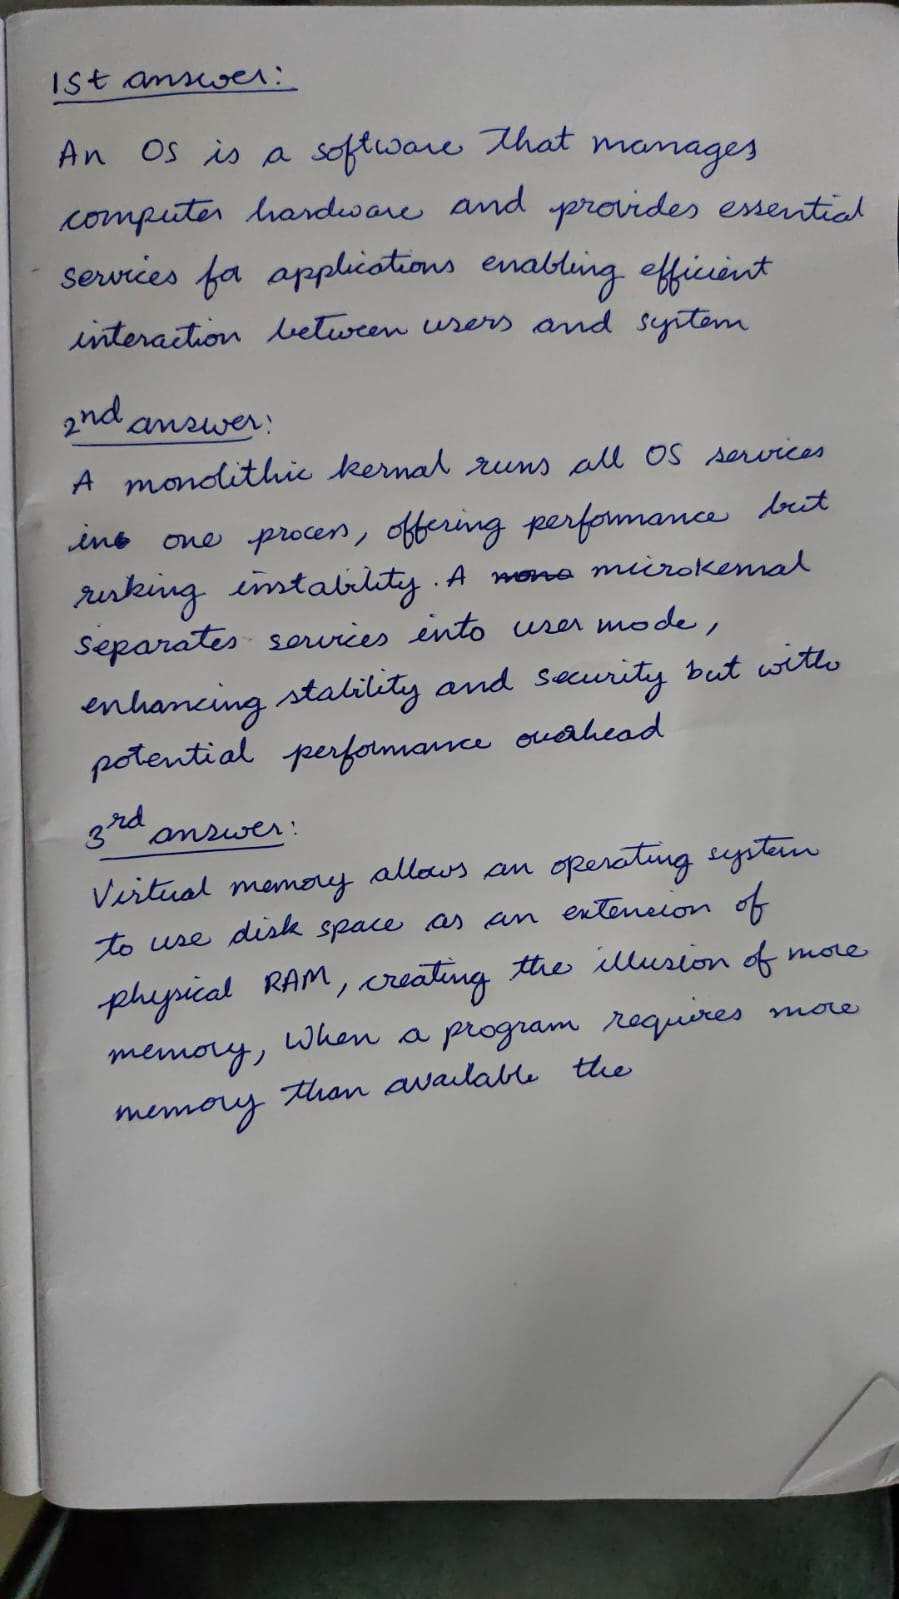 1st answer:
An OS is a software that manages
computer hardware and provides essential
services for applications enabling efficient
interaction between users and system
2nd answer:
A monolithic kernal runs all OS services
in one process, offering performance but
risking instability. A microkernal
separates services into user mode,
enhancing stability and security but with
potential performance overhead
3rd answer:
Virtual memory allows an operating system
to use disk space as an extension of
physical RAM, creating the illusion of more
memory, When a program requires more
memory than available the